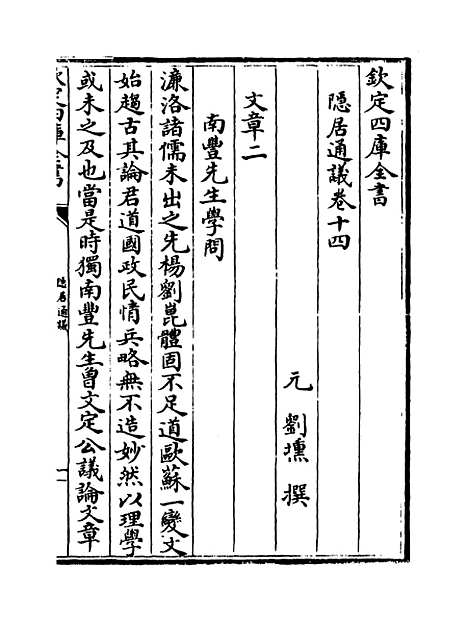 欽定四庫全書
隠居通議卷十四
元 劉壎 撰
文章二
南豐先生學問
濂洛諸儒未出之先楊劉崑體固不足道歐蘇一變文
始趨古其論君道國政民情兵略無不造妙然以理學
或未之及也當是時獨南豐先生曾文定公議論文章
欽定四庫全書
隠居通議
一